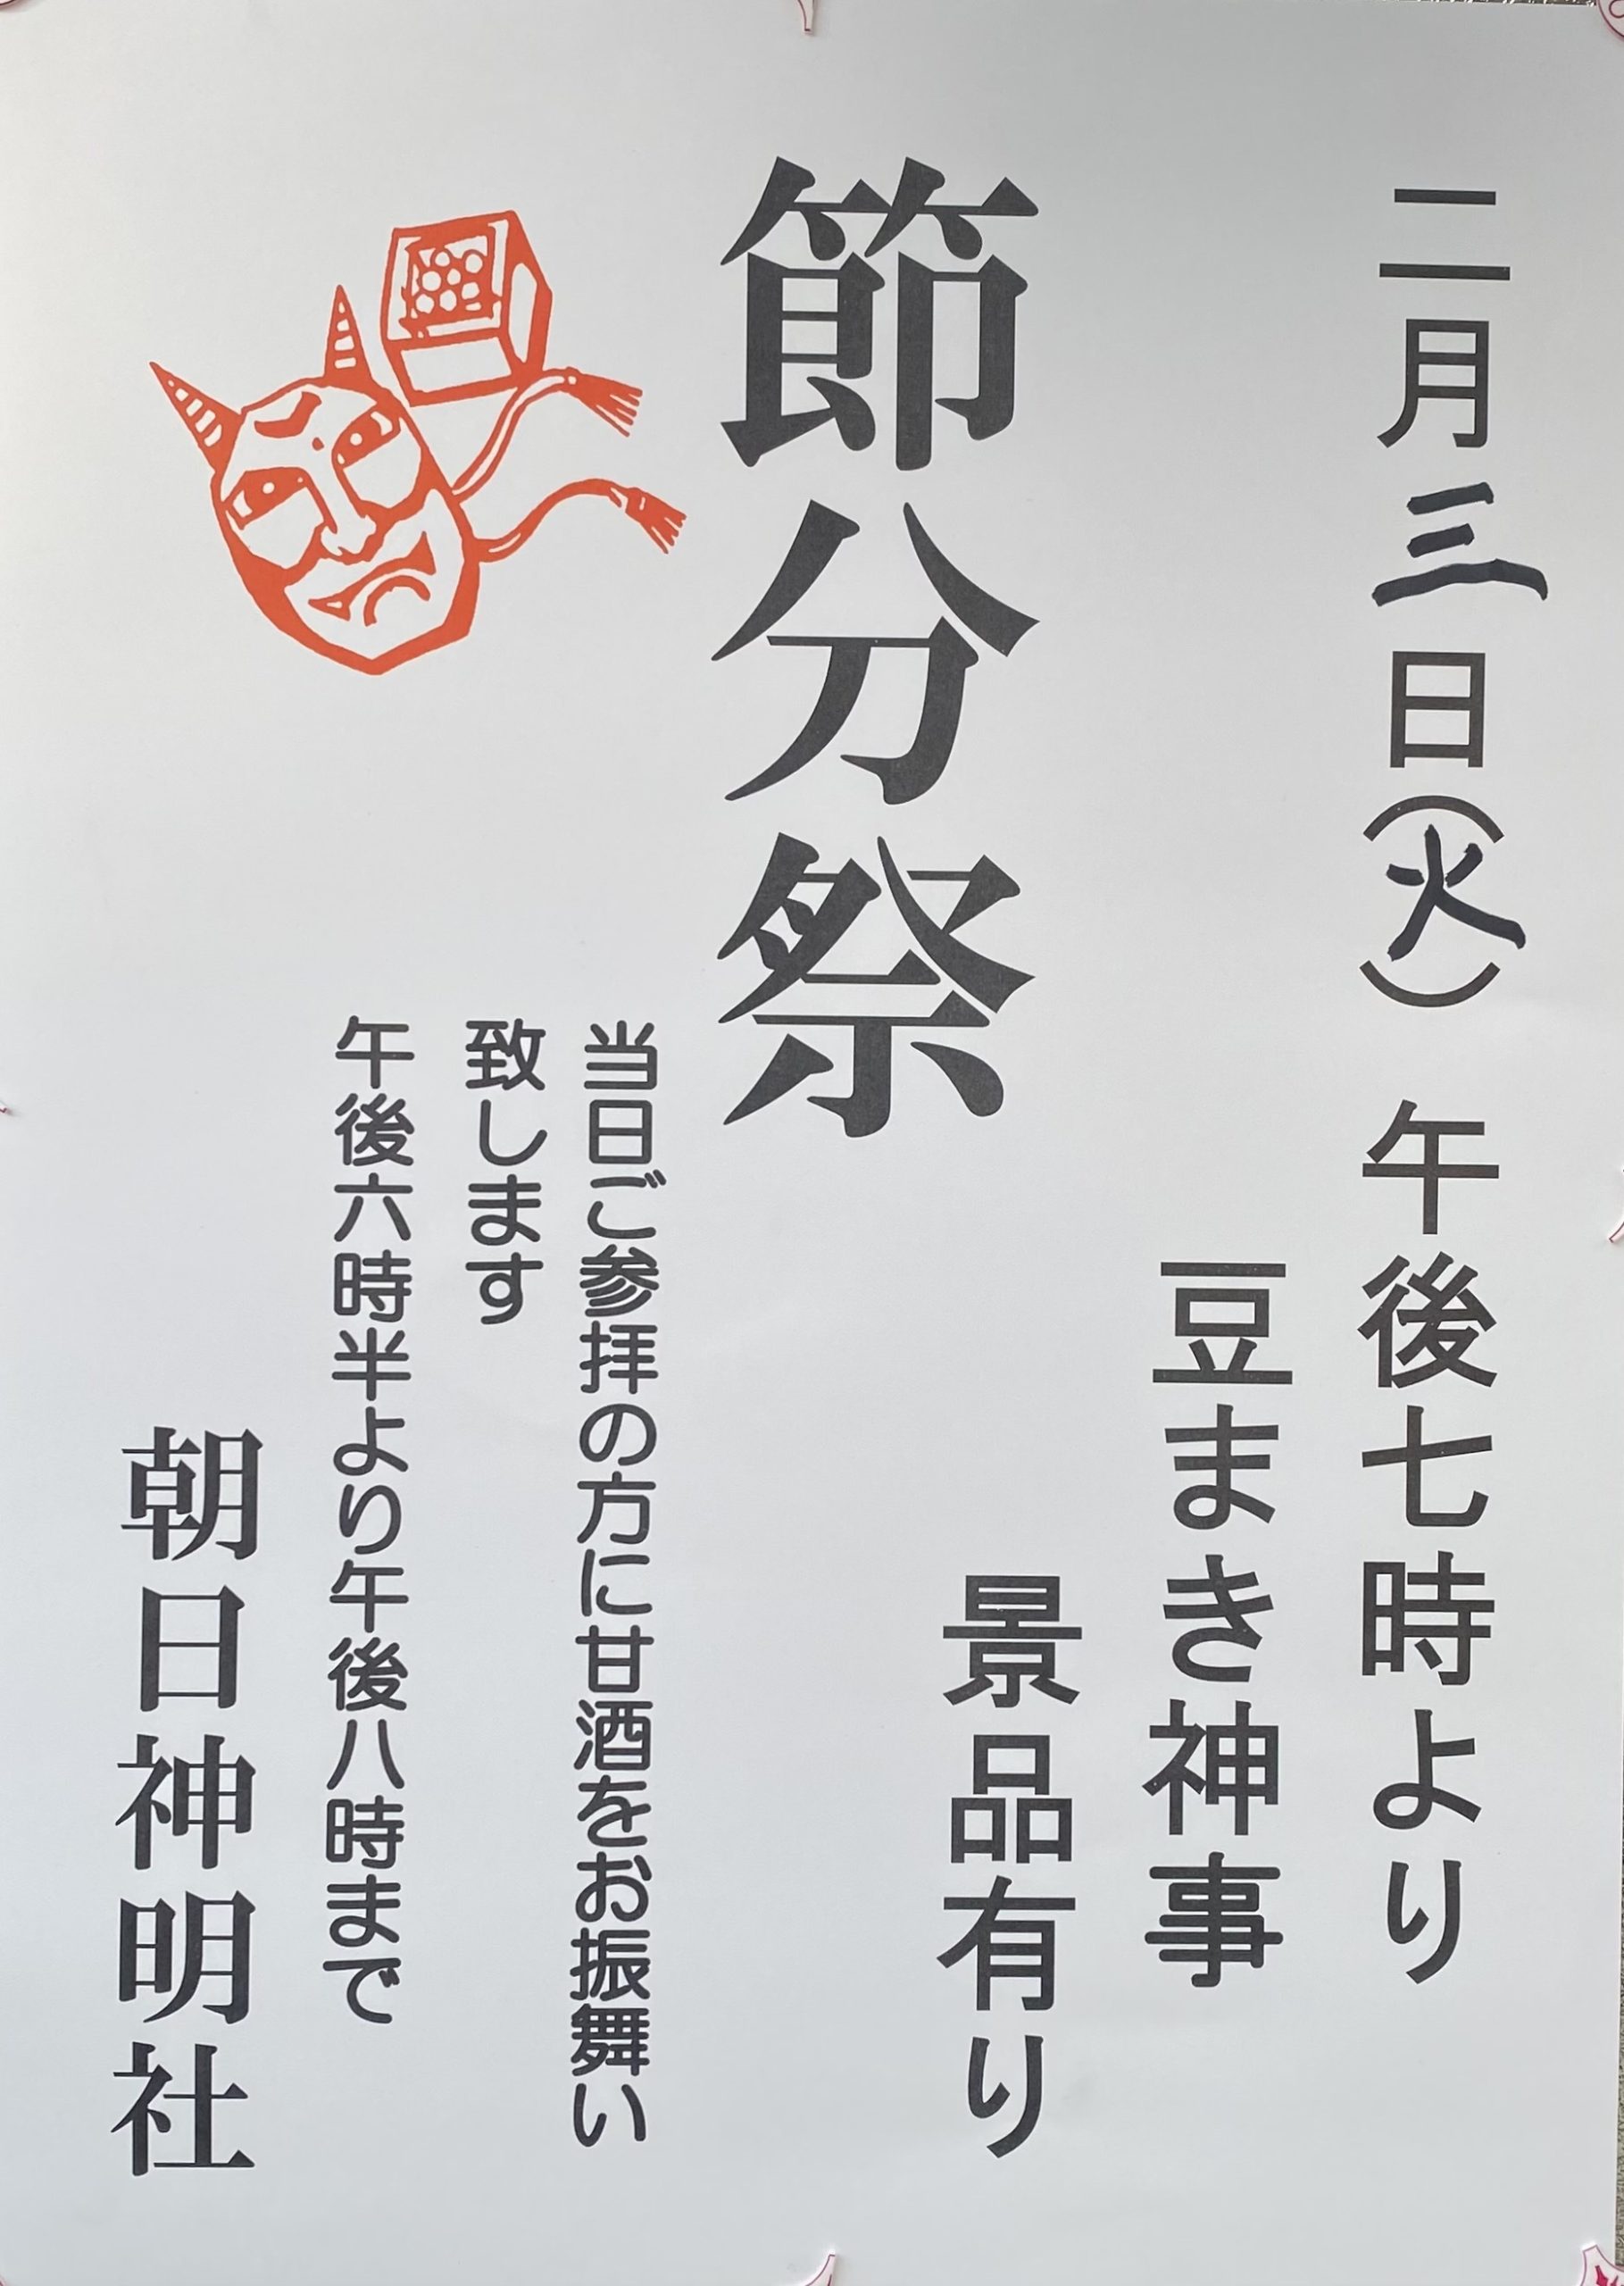 二月三日(火) 午後七時より
豆まき神事
景品有り
節分祭
当日ご参拝の方に甘酒をお振舞い
致します
午後六時半より午後八時まで
朝日神明社